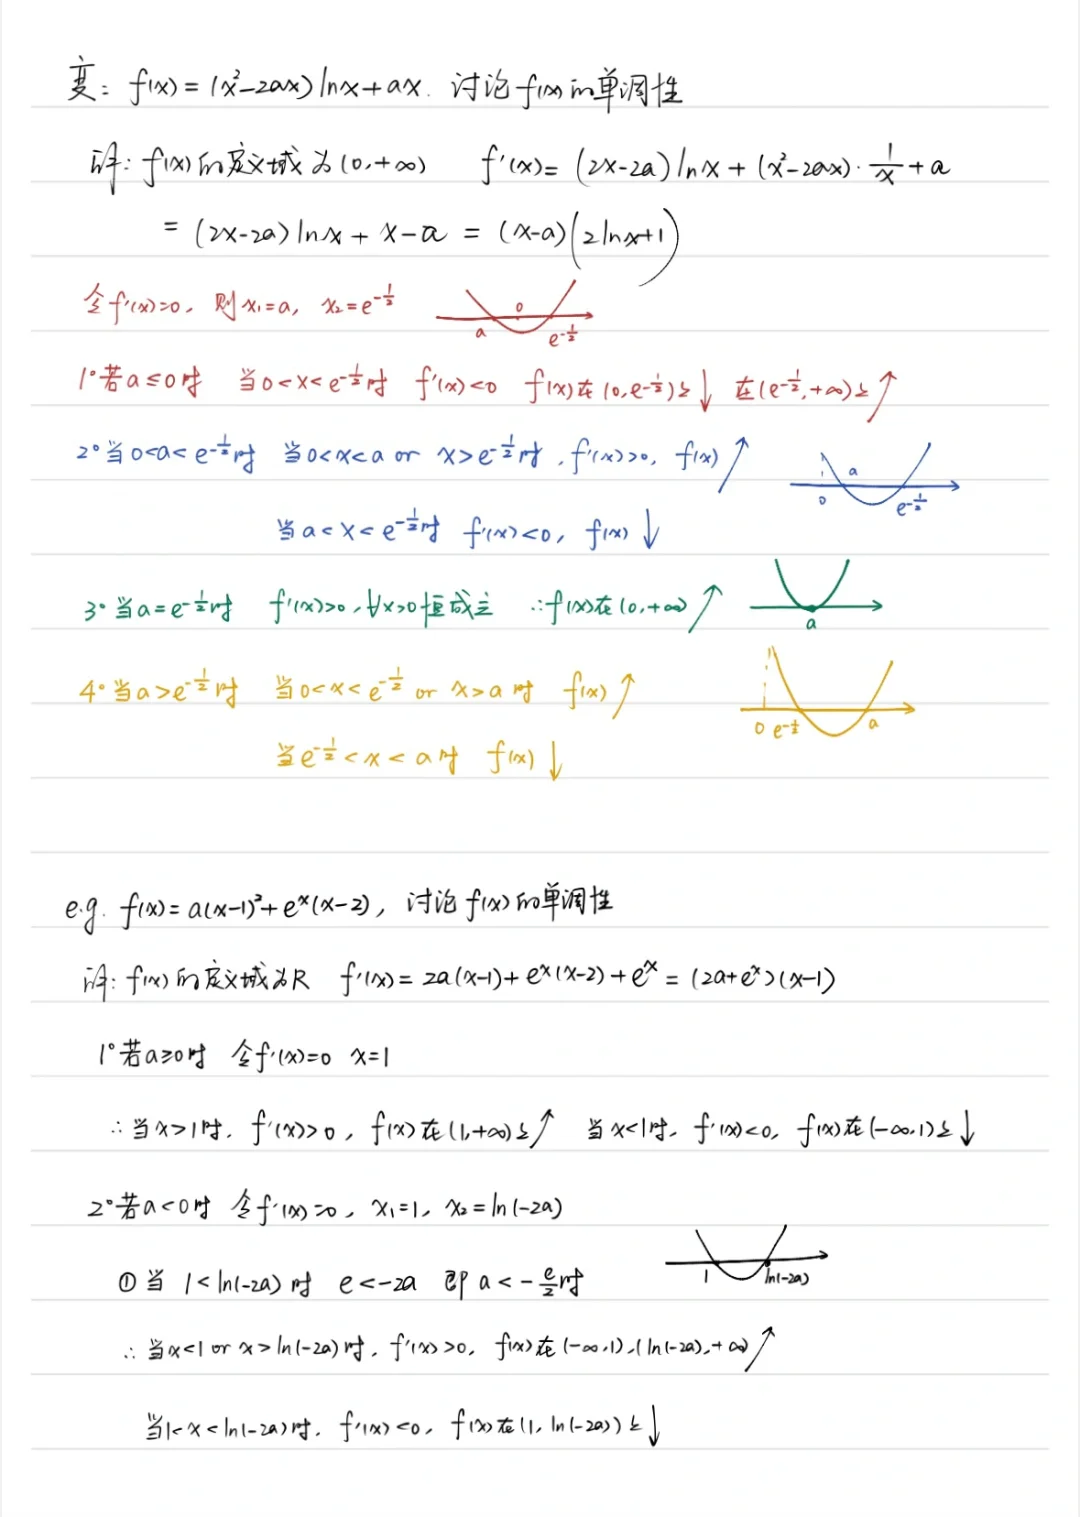 变: f(x) = (x²-2ax) lnx + ax. 讨论 f(x) 的单调性
讲: f(x) 的定义域为 (0,+∞) f'(x) = (2x-2a) ln x + (x²-2ax)·1/x + a
= (2x-2a) lnx + x-a = (x-a)(2lnx+1)
令 f'(x)=0, 则 x₁=a, x₂=e^{-1/2} a 0 e^{-1/2}
1° 若 a≤0 时 当 0<x<e^{-1/2} 时 f'(x)<0 f(x) 在 (0, e^{-1/2}) 上↓ 在 (e^{-1/2}, +∞) 上↗
2° 当 0<a<e^{-1/2} 时 当 0<x<a or x>e^{-1/2} 时, f'(x)>0, f(x)↗ 0 a e^{-1/2}
当 a<x<e^{-1/2} 时 f'(x)<0, f(x)↓
3° 当 a=e^{-1/2} 时 f'(x)>0, ∀x>0 恒成立 ∴ f(x) 在 (0,+∞)↗ a
4° 当 a>e^{-1/2} 时 当 0<x<e^{-1/2} or x>a 时 f(x)↗ 0 e^{-1/2} a
当 e^{-1/2}<x<a 时 f(x)↓
e.g. f(x) = a(x-1)²+e^x(x-2), 讨论 f(x) 的单调性
讲: f(x) 的定义域为R f'(x) = 2a(x-1)+e^x(x-2)+e^x = (2a+e^x)(x-1)
1° 若 a≥0 时 令 f'(x)=0 x=1
∴ 当 x>1 时, f'(x)>0, f(x) 在 (1,+∞) 上↗ 当 x<1 时, f'(x)<0, f(x) 在 (-∞,1) 上↓
2° 若 a<0 时 令 f'(x)=0, x₁=1, x₂=ln(-2a)
① 当 1<ln(-2a) 时 e<-2a 即 a<-e/2 时 1 ln(-2a)
∴ 当 x<1 or x>ln(-2a) 时, f'(x)>0, f(x) 在 (-∞,1),(ln(-2a),+∞)↗
当 1<x<ln(-2a) 时, f'(x)<0, f(x) 在 (1, ln(-2a)) 上↓